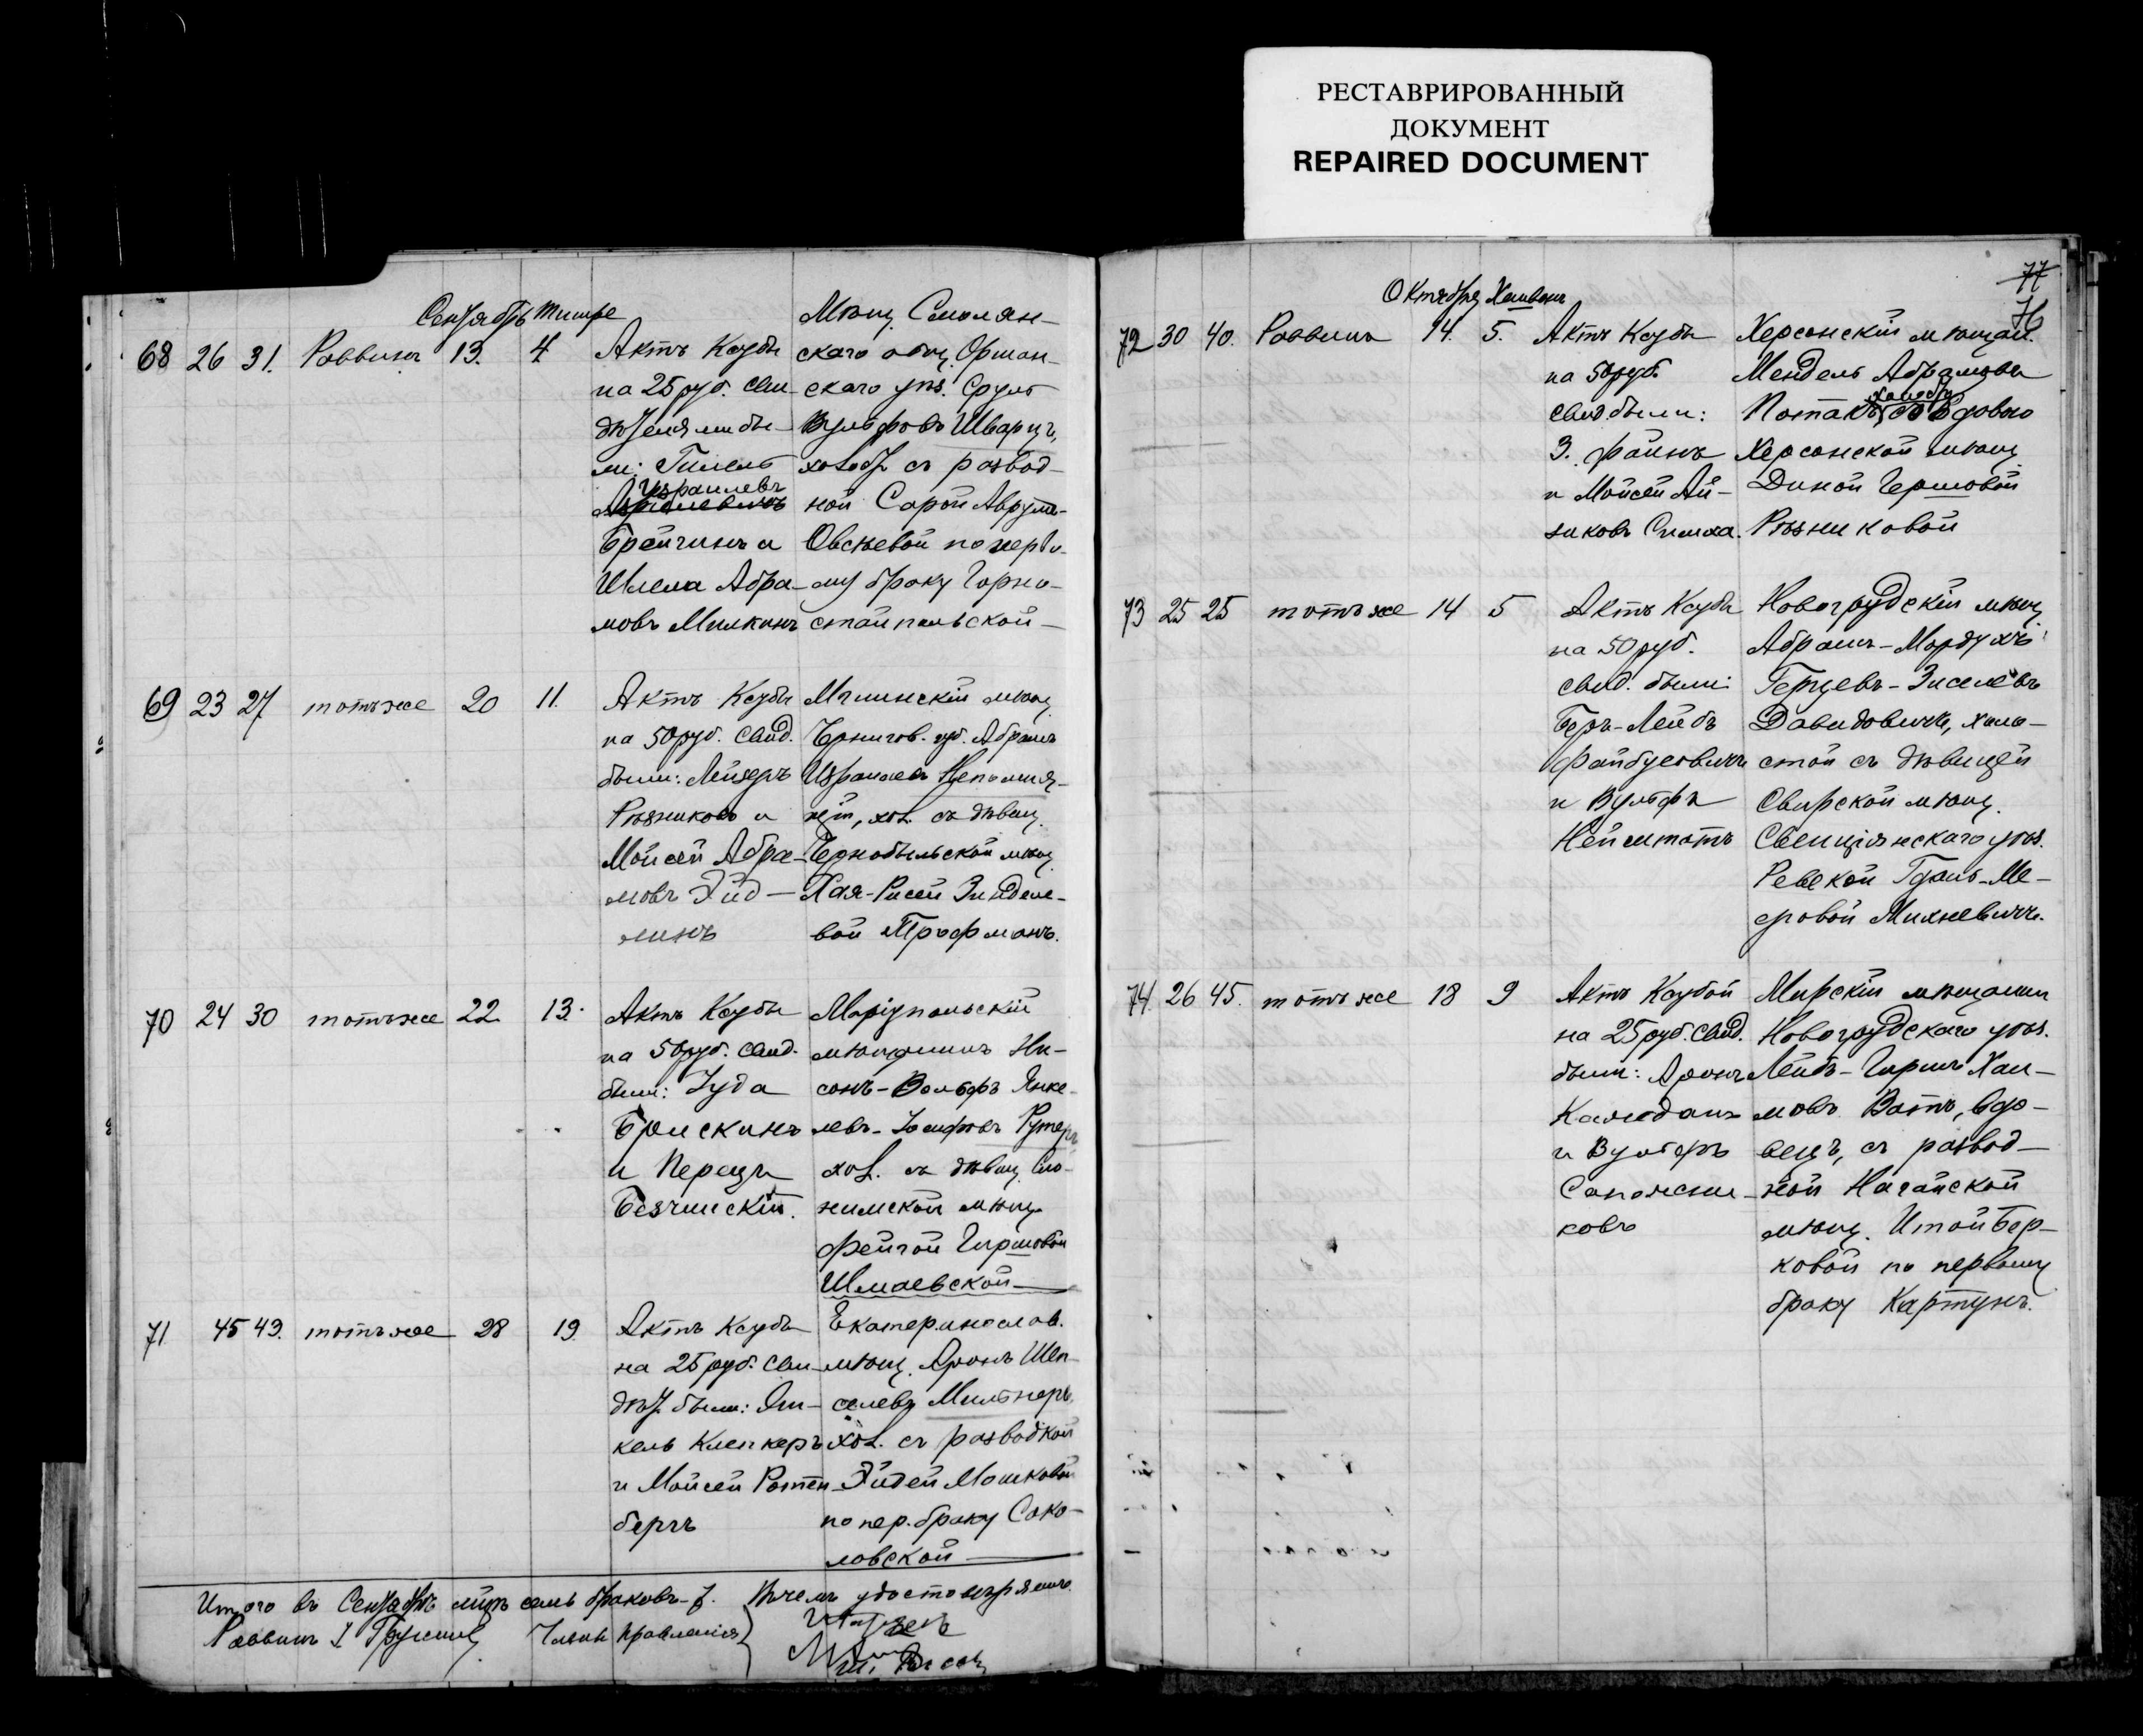 РЕСТАВРИРОВАННЫЙ
ДОКУМЕНТ
REPAIRED DOCUMENT
Сентябрь Тишре
68 26 31. Раввинъ 13. 4
Актъ Ксубы
на 25 руб. Сви-
ли: Гилель
Израилевъ
Брейгинъ и
Шлема Абра-
мовъ Милкинъ
Мѣщ. Смолян-
скаго общ. Оршан-
скаго уѣз. Сруль
Вульфовъ Шварцъ,
съ развод-
ной Сарой Аврумъ-
Овсѣевой по перво-
му браку Горно-
стайпольской
69 23 27 тотъ же 20 11.
Актъ Ксубы
на 50 руб. Свид.
были: Лейзеръ
Рѣзниковъ и
Мойсей Абра-
мовъ Эйд-
линъ
Мглинскій мѣщ.
Чернигов. губ. Абрамъ
Израилевъ Непомня-
щій, хол. съ дѣвиц.
Чернобыльской мѣщ.
Хая-Рисей Зинделе-
вой Трофманъ.
70 24 30 тотъ же 22 13.
Актъ Ксубы
на 50 руб. Свид.
были: Іуда
Брискинъ
и Перецъ
Безчинскій.
Маріупольскій
мѣщанинъ Ни-
сонъ-Вольфъ Янке-
левъ-Іосифовъ
хол. съ дѣвиц. Сло-
нимской мѣщ.
Фейгой Гиршовой
Шмаевской
71 45 49. тотъ же 28 19
Актъ Ксубы
на 25 руб. Сви-
дѣт. были: Ян-
кель Клепкеръ
и Мойсей Ротен-
бергъ
Екатеринослав.
мѣщ. Аронъ Шеп-
селевъ Мильнеръ,
хол. съ разводкой
Эйдей Мошковой
по пер. браку Соко-
ловской
Итого въ Сентябрѣ мѣцѣ семь браковъ-7. Въ чемъ удостовѣряемъ
Раввинъ Члены Правленія
77
Октябрь Хешванъ
72 30 40. Раввинъ 14. 5.
Актъ Ксубы
на 50 руб.
Свид. были:
З. Файнъ
и Мойсей Ай-
зиковъ Симха.
Херсонскій мѣщан.
Мендель Абрамовъ
Потакъ, со вдовою
Херсонской мѣщ.
Диной Гершовой
Рѣзниковой
73 25 25 тотъ же 14 5
Актъ Ксубы
на 50 руб.
Свид. были:
Беръ-Лейбъ
Файбусовичъ
и Вульфъ
Нейштатъ
Новогрудскій мѣщ.
Абрамъ-Мордухъ
Герцевъ-Зиселевъ
Давидовичъ, холо-
стой съ дѣвицей
Свирской мѣщ.
Свенцянскаго уѣз.
Ревекой Гдаль-Ме-
еровой Михневичъ.
74. 26 45. тотъ же 18 9
Актъ Ксубой
на 25 руб. Свид.
были: Аронъ
и Вульфъ
Сапожни-
ковъ
Мирскій мѣщанин
Новогрудскаго уѣз.
Лейбъ-Гиршъ Хаи-
мовъ Ватъ, вдо-
вецъ, съ развод-
ной Нагайской
мѣщ. Итой Бер-
ковой по первому
браку Картунъ.